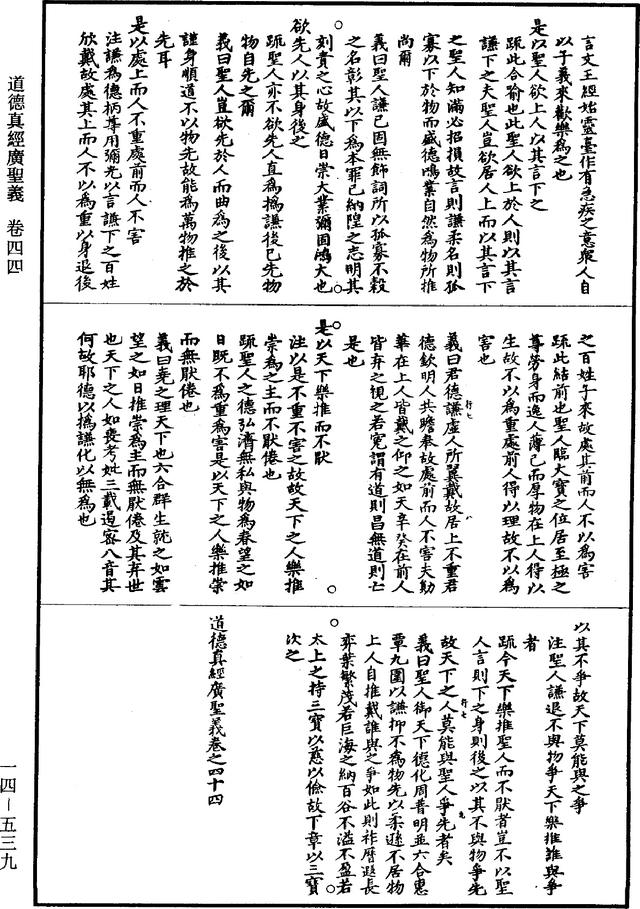 道德真經廣聖義　卷四四
一四－五三九
言文王經始靈臺作有急疾之意衆人自
以子義來歡樂為之也
是以聖人欲上人以其言下之
疏此合喻也此聖人欲上於人則以其言
謙下之夫聖人豈欲居人上而以其言下
之聖人知滿必招損故言則謙柔名則孤
寡以下於物而盛德鴻業自然為物所推
尚爾
義曰聖人謙己固無飾詞所以孤寡不穀
之名彰其以下為本罪己納隍之志明其
刻責之心故盛德日崇大業彌固鴻大也
欲先人以其身後之
疏聖人亦不欲先人直為撝謙後己先物
物自先之爾
義曰聖人豈欲先於人而曲為之後以其
謹身順道不以物先故能為萬物推之於
先耳
是以處上而人不重處前而人不害
注謙為德柄尊用彌光以言謙下之百姓
欣戴故處其上而人不以為重以身退後
之百姓子來故處其前而人不以為害
疏此結前也聖人臨大寶之位居至極之
尊勞身而逸人薄己而厚物在上人得以
生故不以為重處前人得以理故不以為
害也
義曰君德謙虛人所翼戴故居上不重君
德欽明人共瞻奉故處前而人不害夫勛
華在上人皆戴之仰之如天辛癸在前人
皆弃之視之若寃謂有道則昌無道則亡
是也
是以天下樂推而不猒
注以是不重不害之故故天下之人樂推
崇為之主而不猒倦也
疏聖人之德弘濟無私與物為春望之如
日既不為重為害是以天下之人樂推崇
而無猒倦也
義曰堯之理天下也六合群生就之如雲
望之如日推崇為主而無猒倦及其弃世
也天下之人如喪考妣三載遏密八音其
何故耶德以撝謙化以無為也
以其不爭故天下莫能與之爭
注聖人謙退不與物爭天下樂推誰與爭
者
疏今天下樂推聖人而不猒者豈不以聖
人言則下之身則後之以其不與物爭先
故天下之人莫能與聖人爭先者矣
義曰聖人御天下德化周普明並六合惠
覃九圍以謙抑不為物先以柔遜不居物
上人自推戴誰與之爭如此則祚曆遐長
弈葉繁茂若巨海之納百谷不溢不盈若
太上之持三寶以慈以儉故下章以三寶
次之
道德真經廣聖義卷之四十四